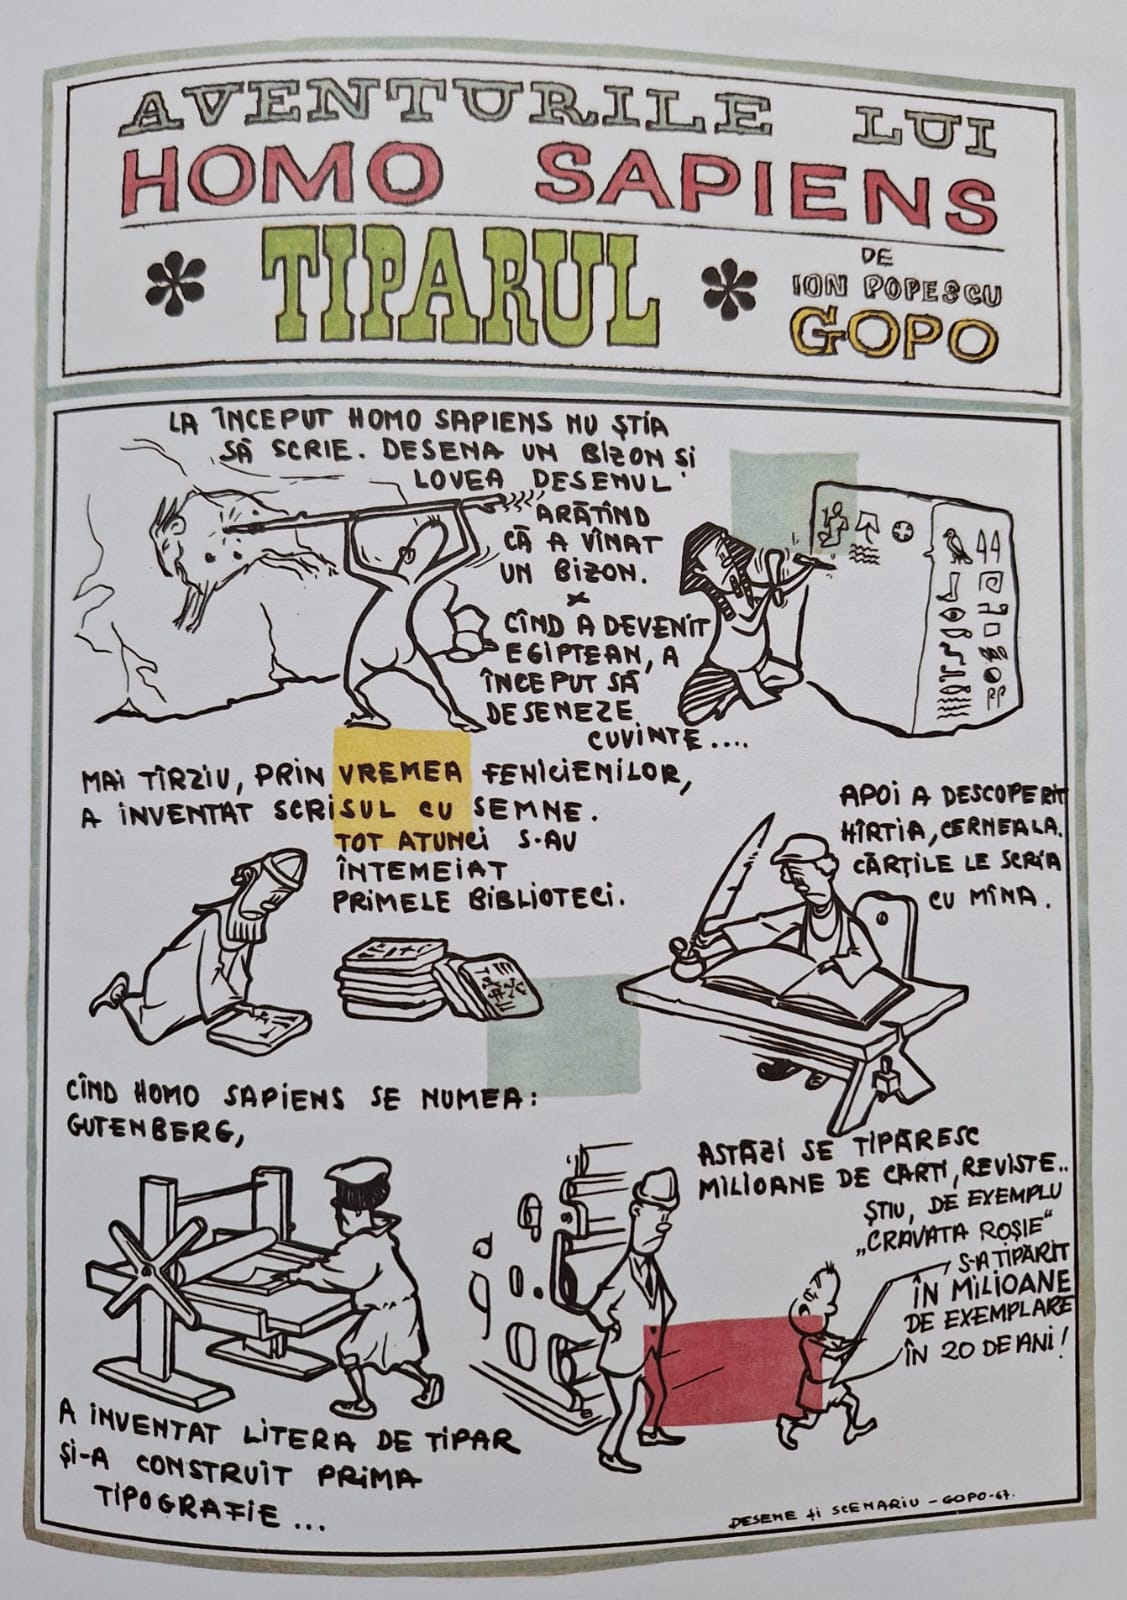 AVENTURILE LUI
HOMO SAPIENS
TIPARUL
DE
ION POPESCU
GOPO
LA ÎNCEPUT HOMO SAPIENS NU ŞTIA
SĂ SCRIE. DESENA UN BIZON ŞI
LOVEA DESENUL
ARĂTÎND
CĂ A VÎNAT
UN BIZON.
x
CÎND A DEVENIT
EGIPTEAN, A
ÎNCEPUT SĂ
DESENEZE
CUVINTE....
MAI TÎRZIU, PRIN VREMEA FENICIENILOR,
A INVENTAT SCRISUL CU SEMNE.
TOT ATUNCI S-AU
ÎNTEMEIAT
PRIMELE BIBLIOTECI.
APOI A DESCOPERIT
HÎRTIA, CERNEALA.
CĂRŢILE LE SCRIA
CU MÎNA.
CÎND HOMO SAPIENS SE NUMEA:
GUTENBERG,
A INVENTAT LITERA DE TIPAR
ŞI-A CONSTRUIT PRIMA
TIPOGRAFIE ...
ASTĂZI SE TIPĂRESC
MILIOANE DE CARTI, REVISTE..
ŞTIU, DE EXEMPLU
„CRAVATA ROŞIE"
S-A TIPĂRIT
ÎN MILIOANE
DE EXEMPLARE
ÎN 20 DE ANI!
DESENE ŞI SCENARIU - GOPO-67.